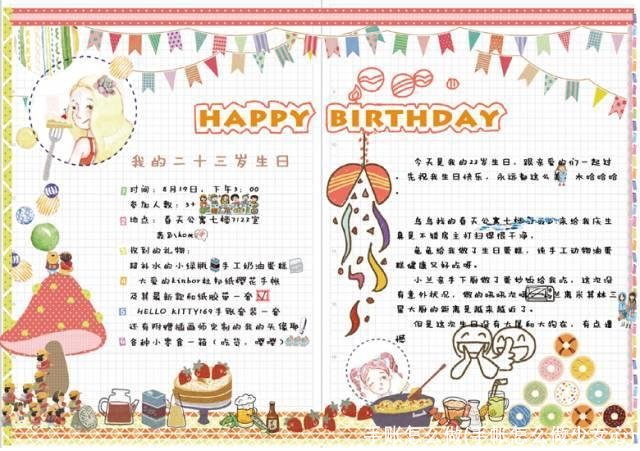 HAPPY BIRTHDAY
我的二十三岁生日
1 时间：8月19日，下午3：00
参加人数：3+
2 地点：春天公寓七楼7123室
3 收到的礼物：
超补水的小绿瓶 手工奶油蛋糕
4 大爱的 杜邦纸樱花手帐
及其最新款和纸胶带一套
5 HELLO KITTY169手账套装一套
还有附赠插画师定制的我的头像哦！
6 各种小零食一箱（吃货，嘤嘤）
今天是我的23岁生日，跟亲爱的们一起过
，先祝我生日快乐，永远都这么 水哈哈哈
。
乌乌找的春天公寓七楼 来给我庆生
真是不错房主打扫得很干净。
龟龟给我做了生日蛋糕，纯手工动物油蛋
糕健康又好吃呀。
小兰亲手下厨做了蛋炒饭给我吃，这次没
有意外状况，做的 兰离米其林三
星大厨的距离是越来越近了。
但是这次生日没有大尾和大狗在，有点遗
憾
手账怎么做(手账怎么做少女心)